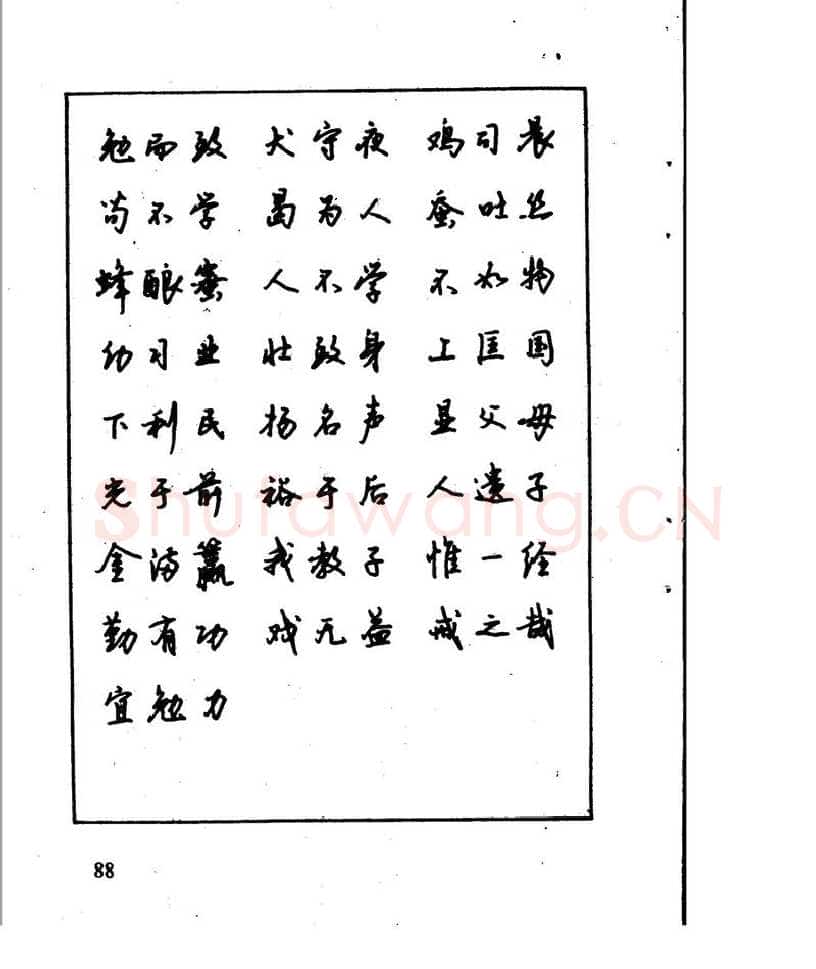 勉而致 犬守夜 鸡司晨
苟不学 曷为人 蚕吐丝
蜂酿蜜 人不学 不如物
幼习业 壮致身 上匡国
下利民 扬名声 显父母
光于前 裕于后 人遗子
金满籯 我教子 惟一经
勤有功 戏无益 戒之哉
宜勉力
88
Shufawang.CN